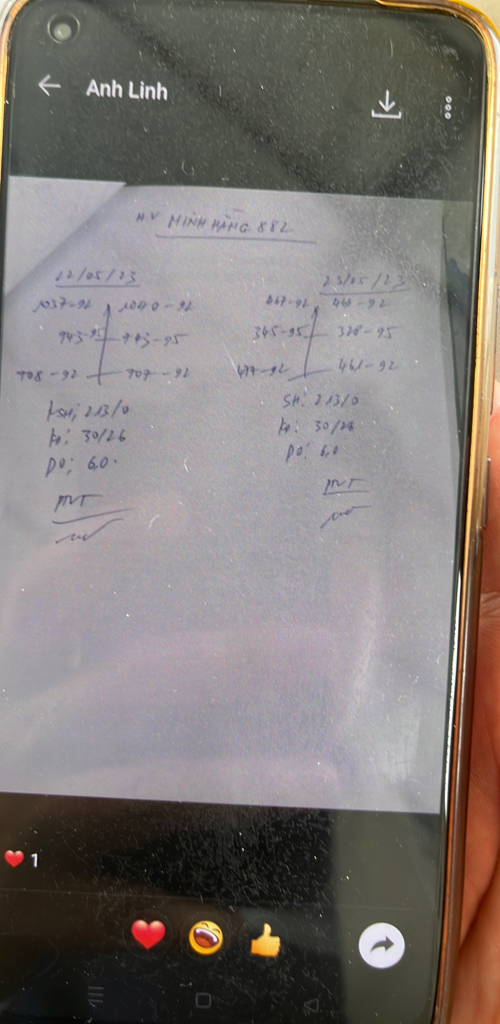 Anh Linh
MINH HẰNG 882
22/05/23
1037-92 1040-92
943-95 943-95
908-92 907-92
213/0
30/26
DO: 6,0.
MVT
23/05/23
467-92
345-95 328-95
461-92
SH: 213/0
30/26
DO: 6,0
MVT
1